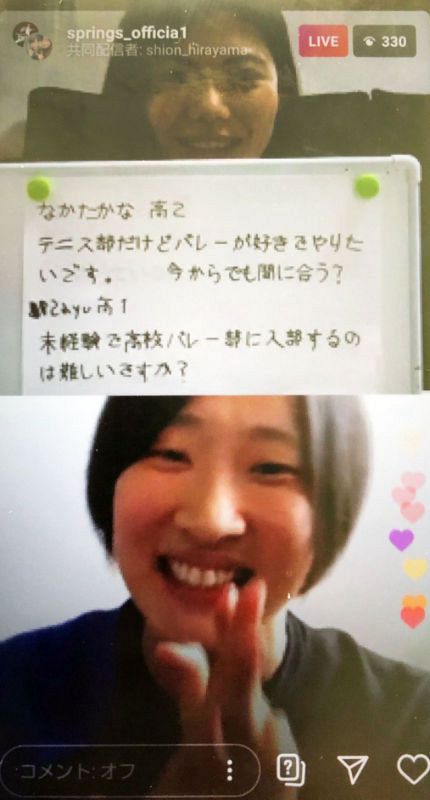 springs_official
共同配信者: shion_hirayama
LIVE
330
なかたかな 高2
テニス部だけどバレーが好きでやりた
いです。 今からでも間に合う?
高1
未経験で高校バレー部に入部するの
は難しいですか?
コメント: オフ